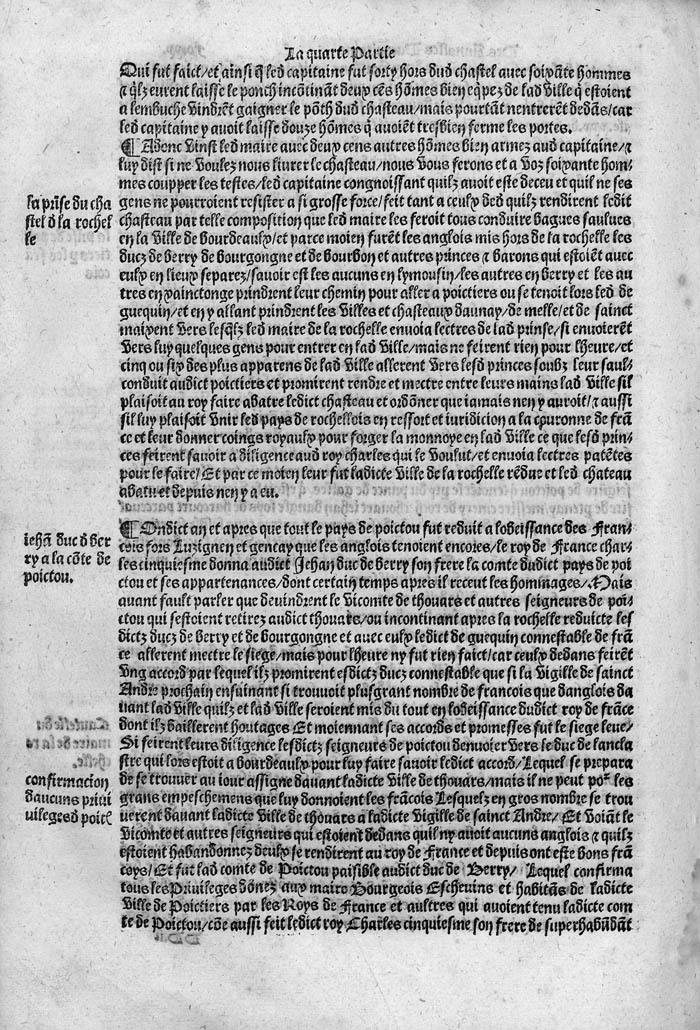 La quarte Partie
Qui fut faict/et ainsi q̃ led capitaine fut sorty hors dud chastel auec soixãte hommes
⁊ q̃lz eurent laisse le ponch incõtinãt deux cẽs hõmes bien eq̃pez de lad ville q̃ estoient
a lembuche vindrẽt gaigner le põth dud chasteau/mais pourtãt nentrerẽt dedãs/car
led capitaine y auoit laisse douze hõmes q̃ auoiẽt tresbien ferme les portes.
¶ Adonc vinst led maire auec deux cens autres hõmes bien armez aud capitaine/⁊
luy dist si ne voulez nous liurer le chasteau/nous vous ferons et a voz soixante hom-
mes coupper les testes/led capitaine congnoissant quilz auoit este deceu et quil ne ses
gens ne pourroient resister a si grosse force/feit tant a ceulx ded quilz rendirent ledit
chasteau par telle composition que led maire les feroit tous conduire bagues saulues
en la ville de bourdeaulx/et parce moien furẽt les anglois mis hors de la rochelle les
ducz de berry de bourgongne et de bourbon et autres princes ⁊ barons qui estoiẽt auec
eulx en lieux separez/sauoir est les aucuns en lymousin/les autres en berry et les au
tres en xainctonge prindrent leur chemin pour aller a poictiers ou se tenoit lors led de
guequin/et en y allant prindrent les villes et chasteaux daunay/de melle/et de sainct
maixent vers lesq̃lz led maire de la rochelle enuoia lectres de lad prinse/si enuoierẽt
vers luy quelques gens pour entrer en lad ville/mais ne feirent rien pour lheure/et
cinq ou six des plus apparens de lad ville allerent vers lesd princes soubz leur saul-
conduit audict poictiers et promirent rendre et mectre entre leurs mains lad ville sil
plaisoit au roy faire abatre ledict chasteau et ordõner que iamais nen y auroit/⁊ aussi
sil luy plaisoit vnir led pays de rochellois en ressort et iuridicion a la couronne de frã
ce et leur donner coings royaulx pour forger la monnoye en lad ville ce que lesd prin-
ces feirent sauoir a diligence aud roy charles qui le voulut/et enuoia lectres patẽtes
pour le faire/Et par ce moien leur fut ladicte ville de la rochelle rẽdue et led chateau
abatu et depuis nen y a eu.
la prise du cha
stel d la rochel
le
¶ Ondict an et apres que tout le pays de poictou fut reduit a lobeissance des Fran-
cois fors Luzignen et gencay que les anglois tenoient encores/le roy de France char-
les cinquiesme donna audict Jehan duc de berry son frere la comte dudict pays de poi
ctou et ses appartenances/dont certain temps apres il recent les hommages/Mais
auant fault parler que deuindrent le vicomte de thouars et autres seigneurs de poi-
ctou qui sestoient retirez audict thouars/ou incontinant apres la rochelle reduicte les
dictz ducz de berry et de bourgongne et auec eulx ledict de guequin connestable de frã
ce allerent mectre le siege/mais pour lheure ny fut rien faict/car ceulx dedans feirẽt
vng accord par lequel ilz promirent esdictz ducz connestable que si la vigille de sainct
Andre prochain ensuinant si trouuoit plusgrant nombre de francois que danglois da
uant lad ville quilz et lad ville seroient mis du tout en lobeissance dudict roy de frãce
dont ilz baillerent houtages Et moiennant ses accords et promesses fut le siege leue/
Si feirent leurs diligence lesdictz seigneurs de poictou denuoier vers le duc de lancla
stre qui lors estoit a bourdeaulx pour luy faire sauoir ledict accord/Lequel se prepara
de se trouuer au iour assigne dauant ladicte ville de thouars/mais il ne peut po² les
grans empeschemens que luy donnoient les frãcois Lesquelz en gros nombre se trou
uerent dauant ladicte ville de thouars a ladicte vigille de sainct Andre/Et voiãt le
vicomte et autres seigneurs qui estoient dedans quil ny auoit aucuns anglois ⁊ quilz
estoient habandonnez deulx se rendirent au roy de France et depuis ont este bons frã
coys/Et fut lad comte de Poictou paisible audict duc de Berry/ Lequel confirma
tous les Priuileges dõnez aux maire Bourgeois Escheuins et habitãs de ladicte
ville de Poictiers par les Roys de France et aultres qui auoient tenu ladicte com
te de Poictou/cõe aussi feit ledict roy Charles cinquiesme son frere de superhabũdãt
iehã duc d ber
ry a la cõte de
poictou.
confirmacion
daucuns priui
uileges d poict